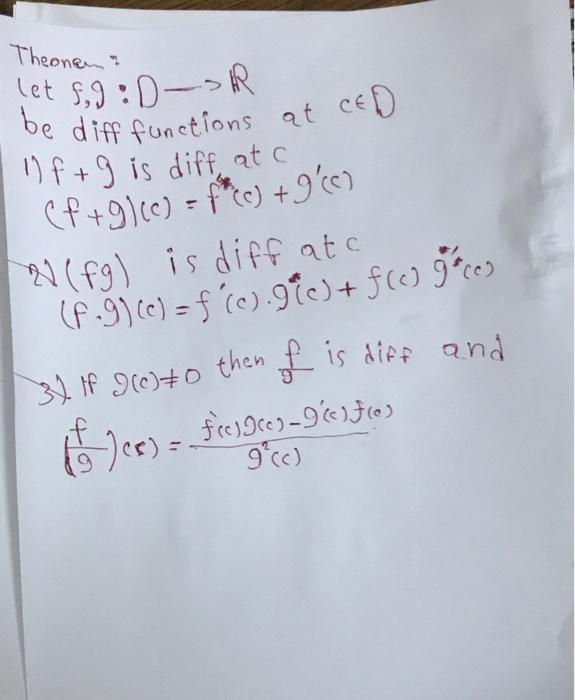 Theorem:
Let f,g : D → ℝ
be diff functions at c∈D
1) f + g is diff at c
(f+g)(c) = f'(c) + g'(c)
2) (fg) is diff at c
(f.g)(c) = f'(c).g(c) + f(c) g'(c)
3). If g(c)≠0 then f/g is diff and
(f/g)(c) = f'(c)g(c) - g'(c)f(c) / g²(c)